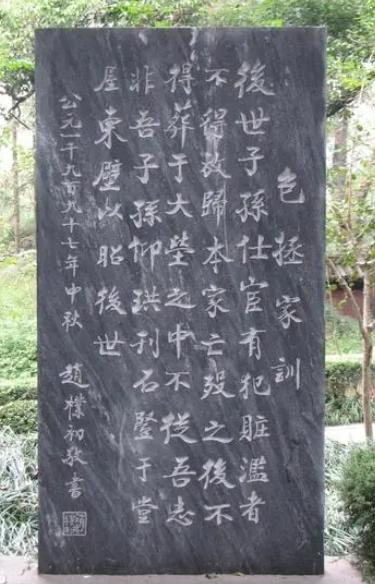 包拯家訓
後世子孫仕宦有犯賍濫者
不得放歸本家亡殁之後不
得葬于大塋之中不從吾志
非吾子孫仰珙刊石豎于堂
屋東壁以昭後世
公元一千九百九十七年中秋 趙樸初敬書